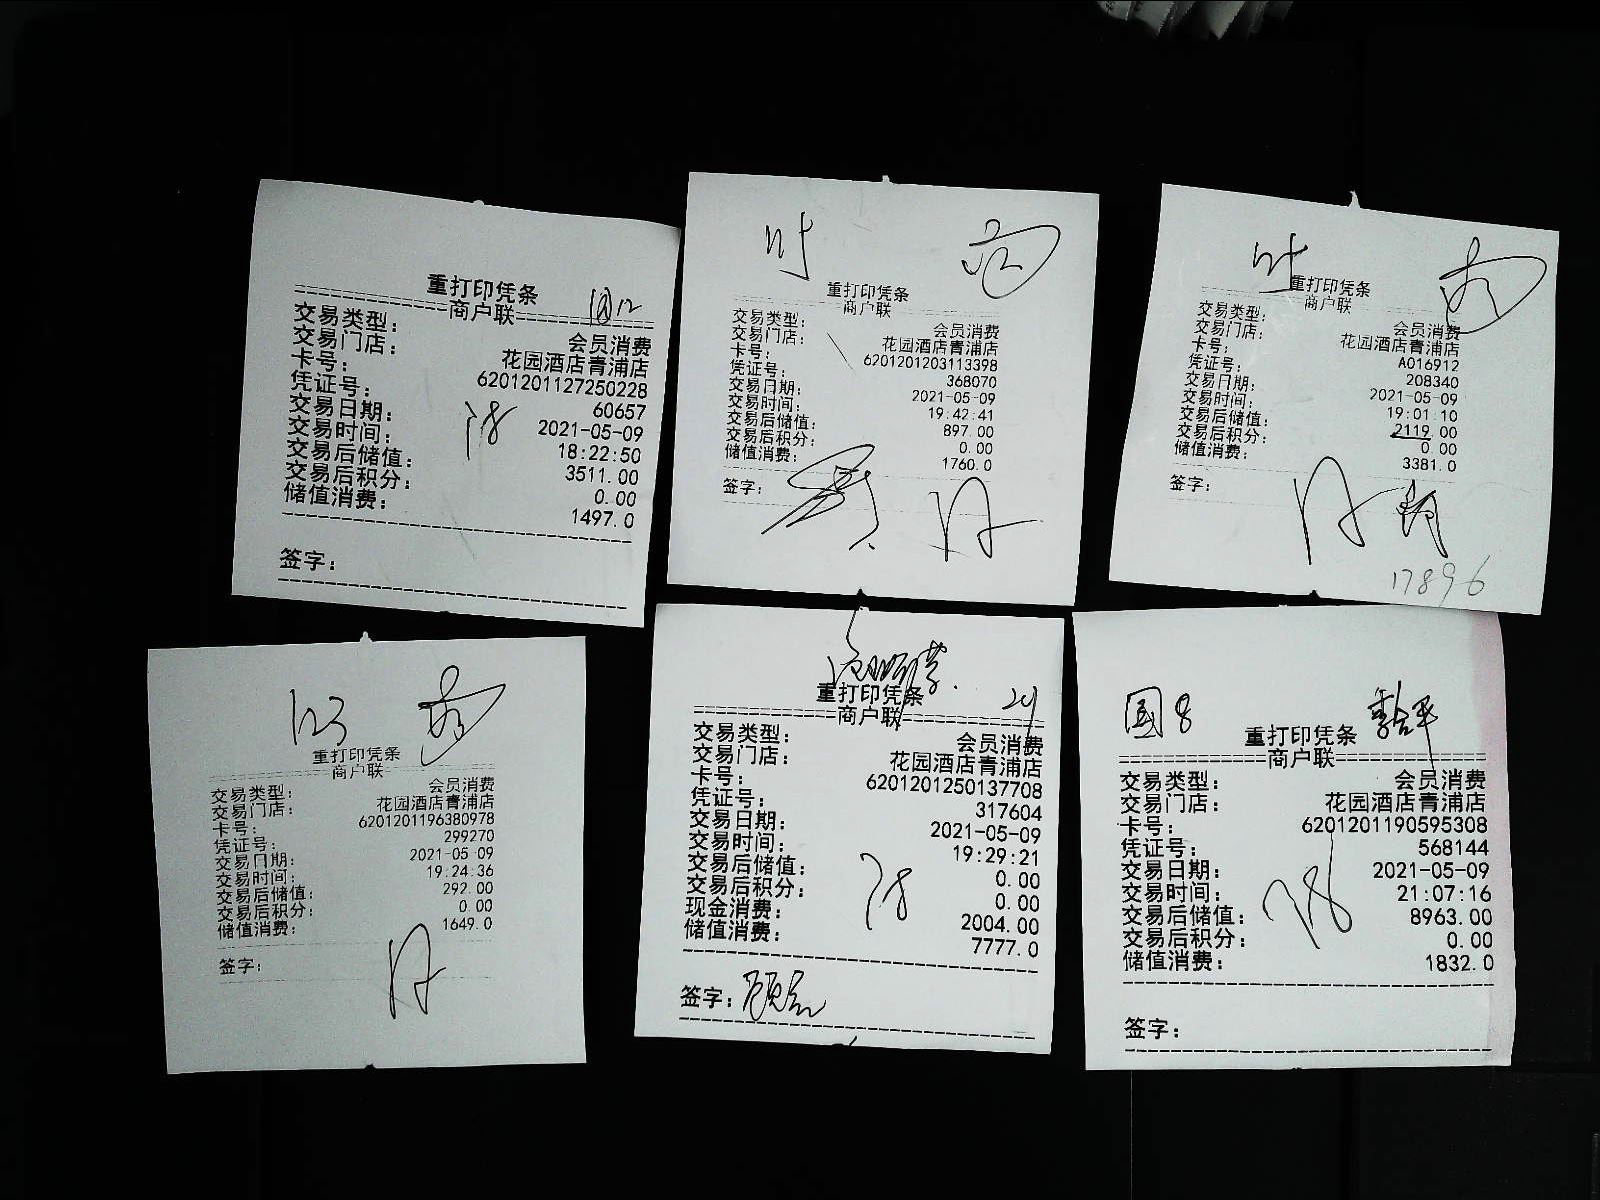 重打印凭条
商户联
交易类型: 会员消费
交易门店: 花园酒店青浦店
卡号: 6201201127250228
凭证号: 60657
交易日期: 2021-05-09
交易时间: 18:22:50
交易后储值: 3511.00
交易后积分: 0.00
储值消费: 1497.0
签字:
重打印凭条
商户联
交易类型: 会员消费
交易门店: 花园酒店青浦店
卡号: 6201201203113398
凭证号: 368070
交易日期: 2021-05-09
交易时间: 19:42:41
交易后储值: 897.00
交易后积分: 0.00
储值消费: 1760.0
签字:
重打印凭条
商户联
交易类型: 会员消费
交易门店: 花园酒店青浦店
卡号: A016912
凭证号: 208340
交易日期: 2021-05-09
交易时间: 19:01:10
交易后储值: 2119.00
交易后积分: 0.00
储值消费: 3381.0
签字:
17896
123
重打印凭条
商户联
交易类型: 会员消费
交易门店: 花园酒店青浦店
卡号: 6201201196380978
凭证号: 299270
交易日期: 2021-05-09
交易时间: 19:24:36
交易后储值: 292.00
交易后积分: 0.00
储值消费: 1649.0
签字:
重打印凭条
商户联
交易类型: 会员消费
交易门店: 花园酒店青浦店
卡号: 6201201250137708
凭证号: 317604
交易日期: 2021-05-09
交易时间: 19:29:21
交易后储值: 0.00
交易后积分: 0.00
现金消费: 2004.00
储值消费: 7777.0
签字:
國8
重打印凭条
商户联
交易类型: 会员消费
交易门店: 花园酒店青浦店
卡号: 6201201190595308
凭证号: 568144
交易日期: 2021-05-09
交易时间: 21:07:16
交易后储值: 8963.00
交易后积分: 0.00
储值消费: 1832.0
签字: